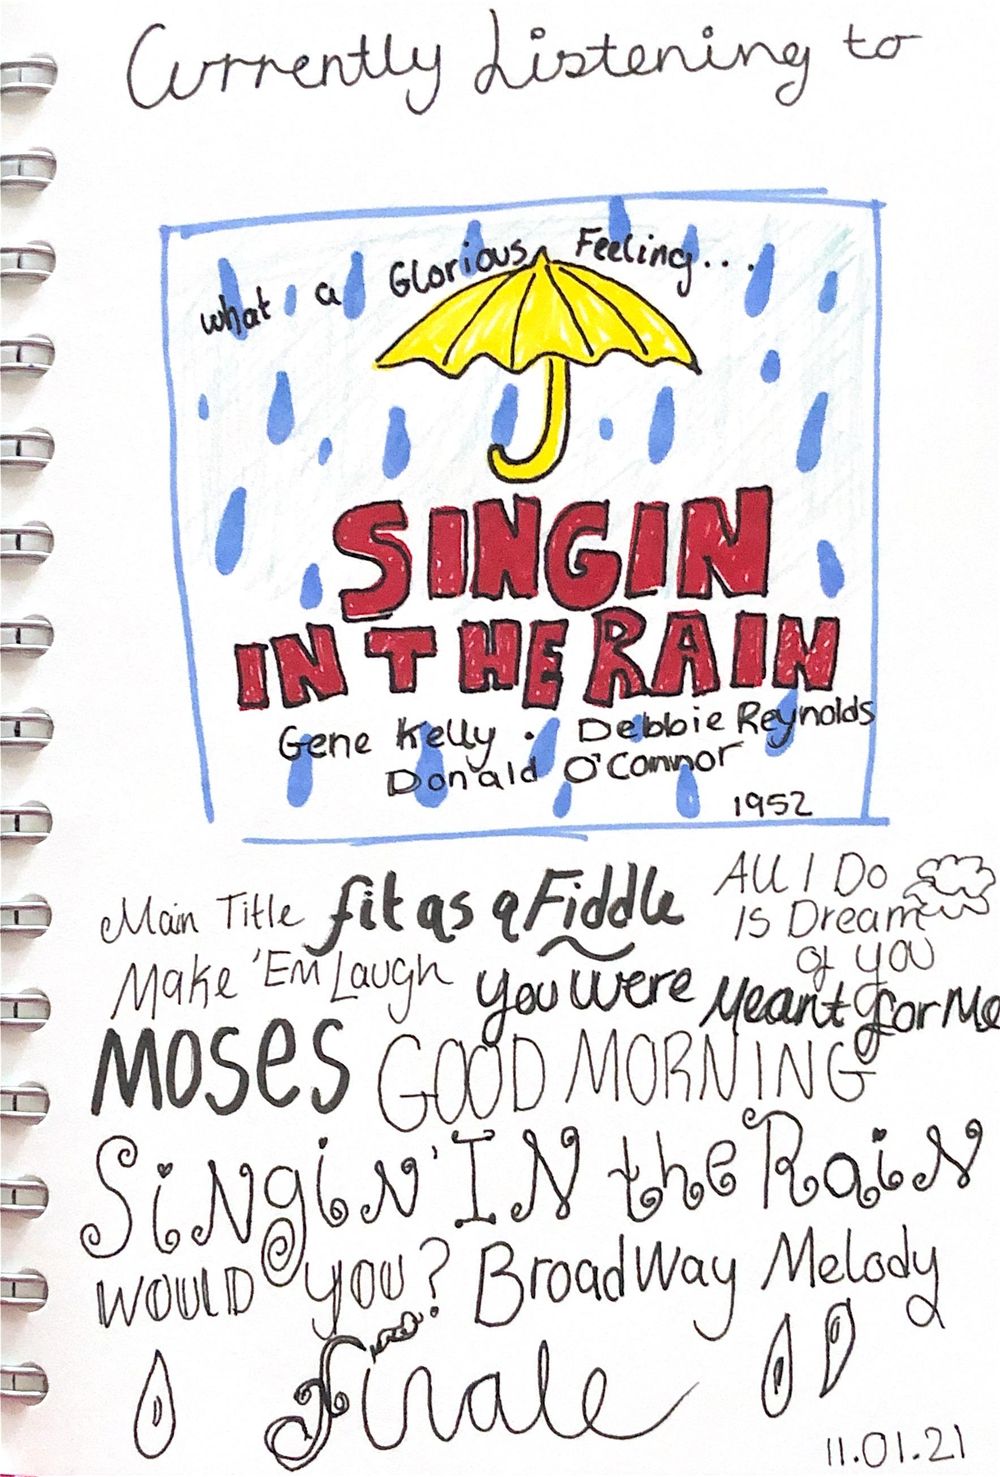 Currently Listening to
What a Glorious Feeling...
SINGIN
IN THE RAIN
Gene Kelly . Debbie Reynolds
Donald O'Connor
1952
Main Title fit as a Fiddle All I Do
Is Dream
of you
Make 'Em Laugh you were Meant for Me
MOSES GOOD MORNING
SiNgiN' IN the RaiN
WOULD YOU? BroadWay Melody
Finale
11.01.21